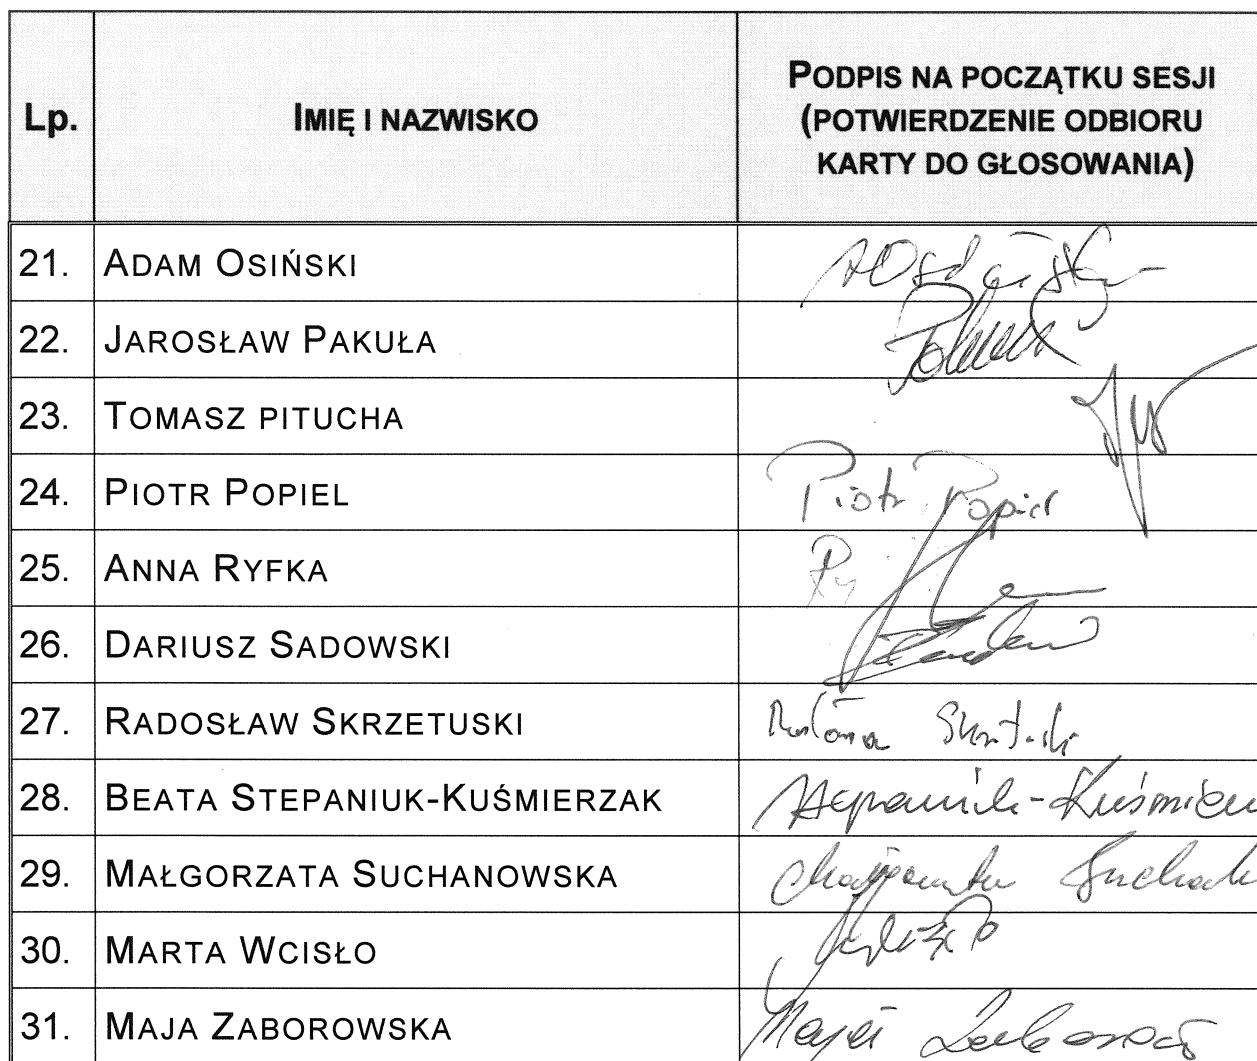 Lp.
IMIĘ I NAZWISKO
PODPIS NA POCZĄTKU SESJI
(POTWIERDZENIE ODBIORU
KARTY DO GŁOSOWANIA)
21. ADAM OSIŃSKI
22. JAROSŁAW PAKUŁA
23. TOMASZ PITUCHA
24. PIOTR POPIEL Piotr Popiel
25. ANNA RYFKA
26. DARIUSZ SADOWSKI
27. RADOSŁAW SKRZETUSKI
28. BEATA STEPANIUK-KUŚMIERZAK
29. MAŁGORZATA SUCHANOWSKA
30. MARTA WCISŁO
31. MAJA ZABOROWSKA Maja